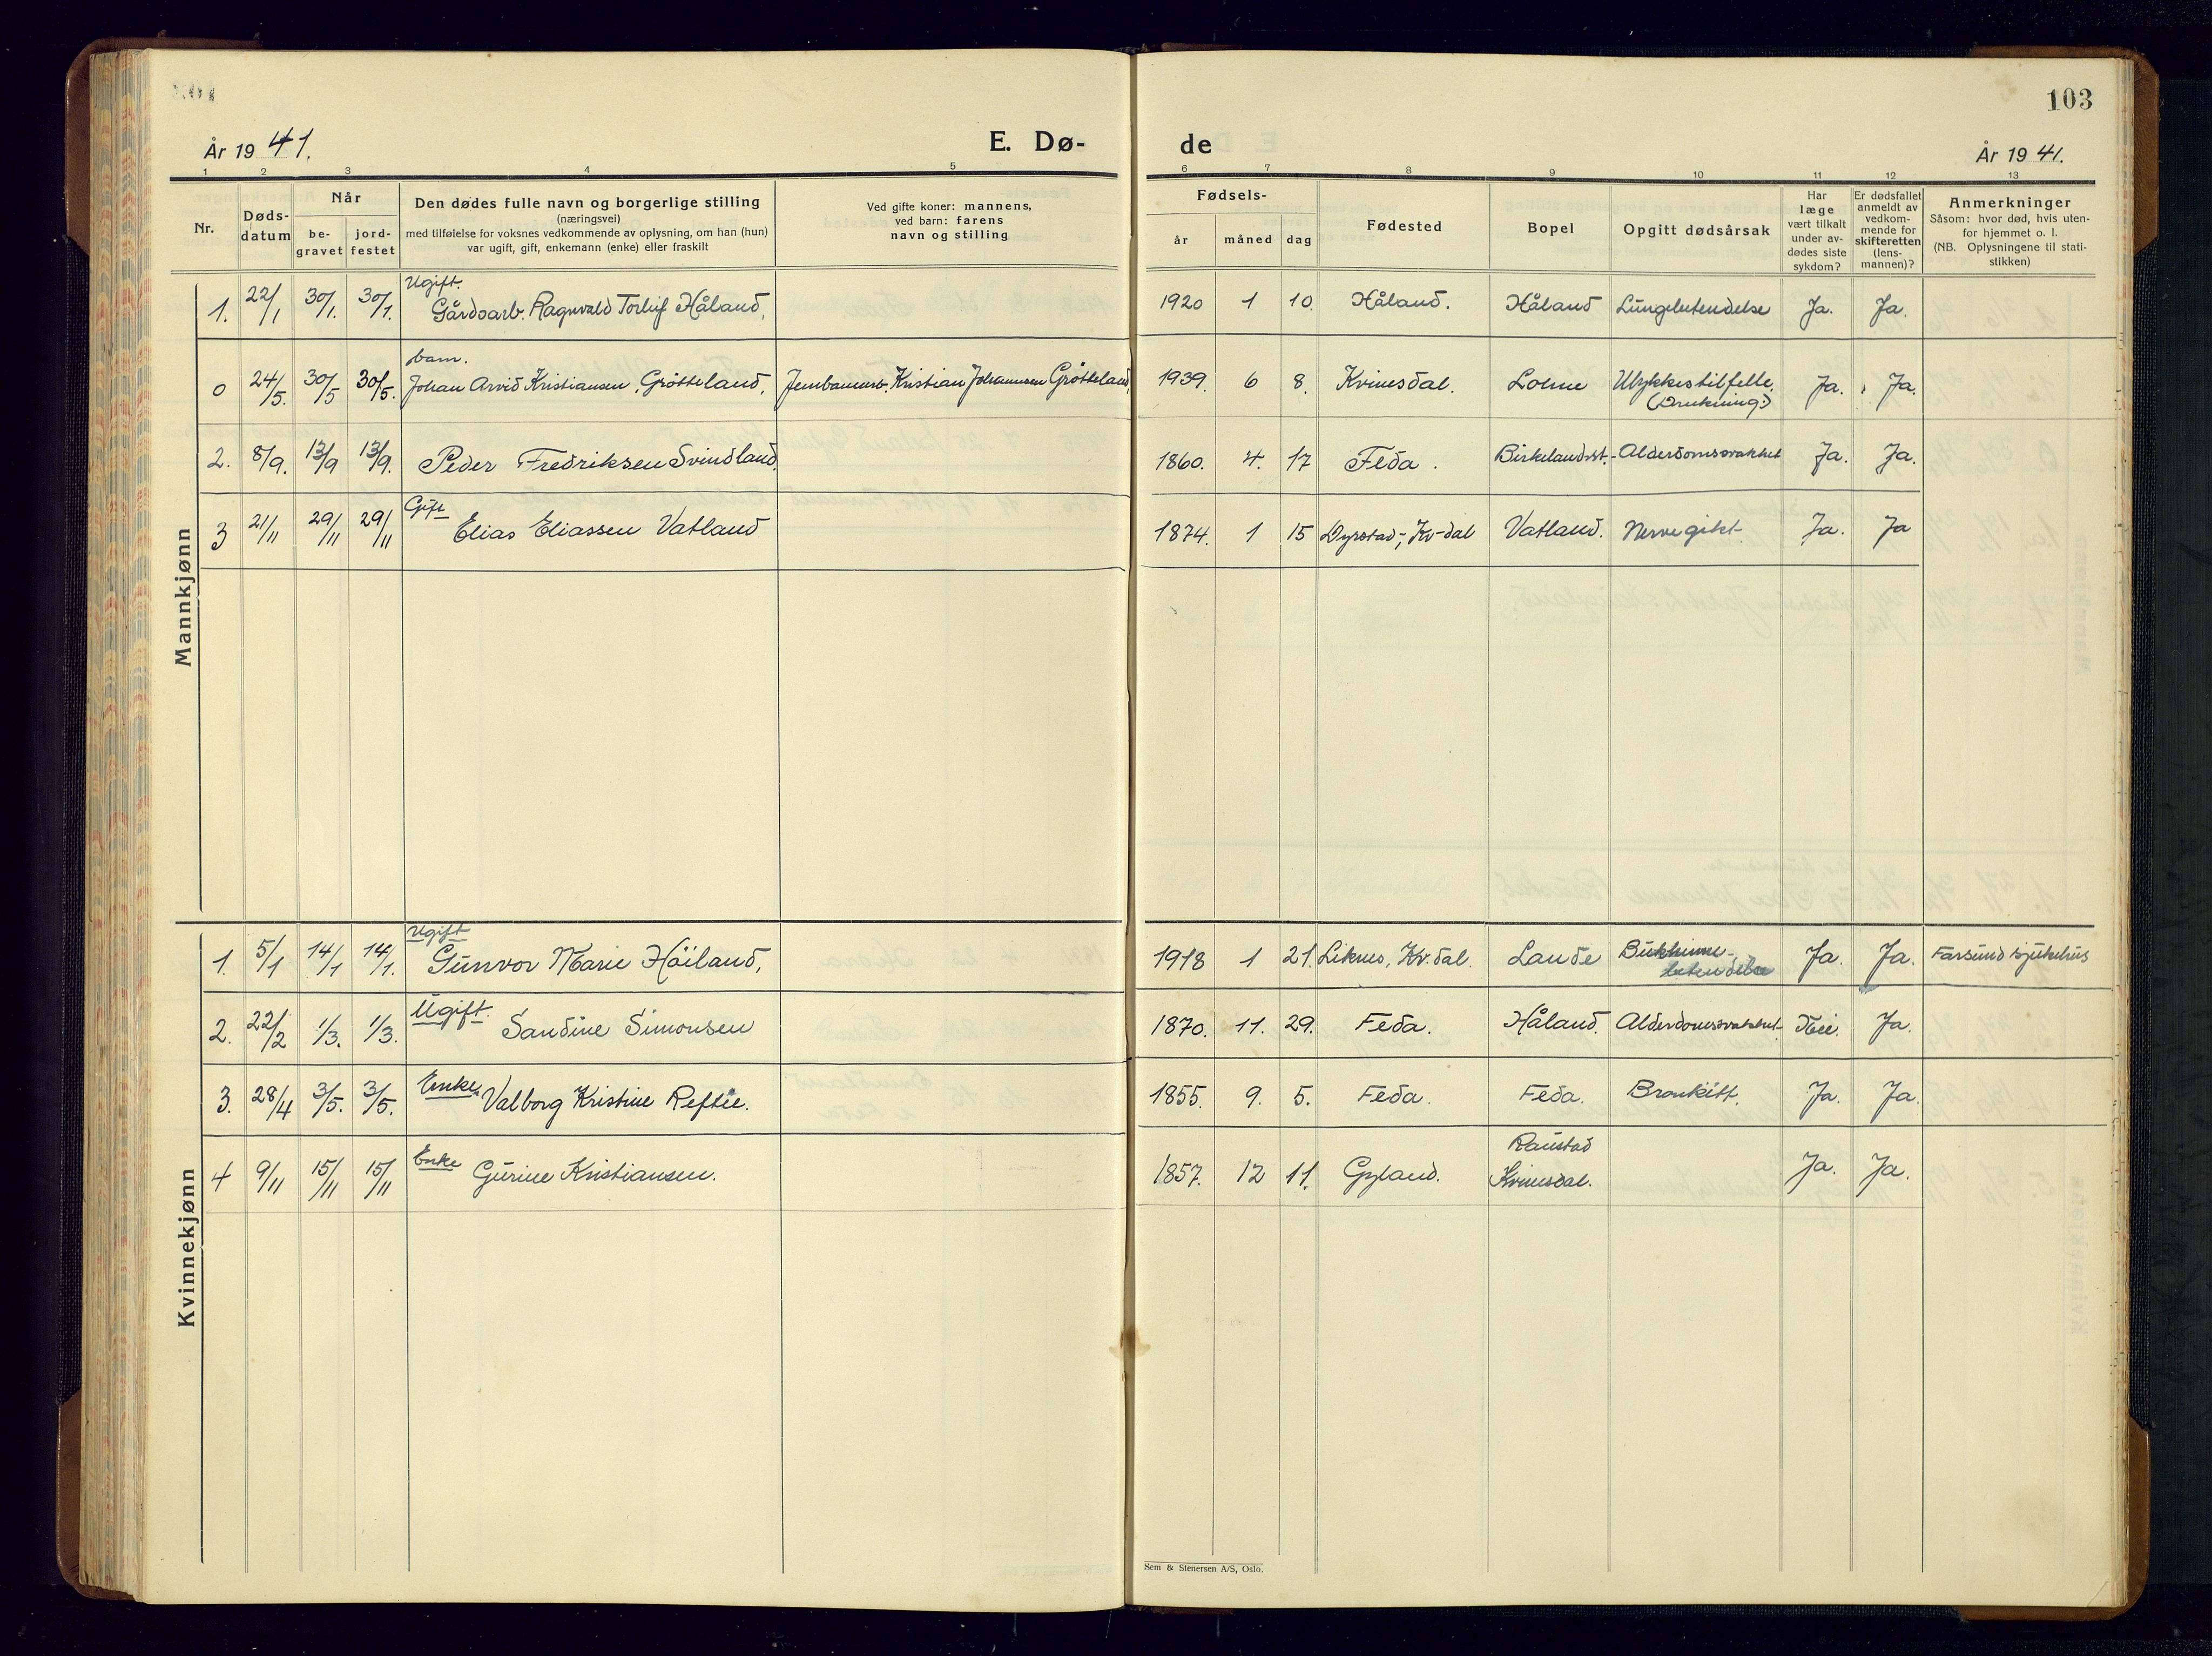 103
År 1941.
E. Dø-
de
År 1941.
1 2 3 4 5 6 7 8 9 10 11 12 13
Nr.
Døds-
datum
Når
be-
gravet
jord-
festet
Den dødes fulle navn og borgerlige stilling
(næringsvei)
med tilføielse for voksnes vedkommende av oplysning, om han (hun)
var ugift, gift, enkemann (enke) eller fraskilt
Ved gifte koner: mannens,
ved barn: farens
navn og stilling
Fødsels-
år
måned
dag
Fødested
Bopel
Opgitt dødsårsak
Har
læge
vært tilkalt
under av-
dødes siste
sykdom?
Er dødsfallet
anmeldt av
vedkom-
mende for
skifteretten
(lens-
mannen)?
Anmerkninger
Såsom: hvor død, hvis uten-
for hjemmet o. l.
(NB. Oplysningene til stati-
stikken)
Mannkjønn
Ugift.
1. 22/1 30/1. 30/1. Gårdsarb. Ragnvald Torleif Håland, 1920 1 10. Håland. Håland Lungebetendelse Ja. Ja.
barn.
0 24/5. 30/5 30/5. Johan Arvid Kristiansen, Grötteland, Jernbanearb. Kristian Johannesen Grötteland, 1939. 6 8. Kvinesdal. Lolme Ulykkestilfelle. Ja. Ja.
(Drukning.)
2. 8/9. 13/9 13/9. Peder Fredriksen Svindland. 1860. 4. 17 Feda. Birkelandsst. Alderdomssvakhet Ja. Ja.
Gift
3 21/11 29/11 29/11 Elias Eliassen Vatland 1874. 1 15 Dyrstad-, Kv-dal Vatland. Nervegikt Ja. Ja
Kvinnekjønn
Ugift
1. 5/1 14/1 14/1. Gunvor Marie Höiland, 1918 1 21. Liknes, Kv.dal. Lande Bukhinne- Ja. Ja. Farsund sjukehus
betendelse
Ugift.
2. 22/2 1/3. 1/3. Sandine Simonsen 1870. 11. 29. Feda. Håland. Alderdomssvakhet Nei. Ja.
3. 28/4 3/5. 3/5. Enke. Valborg Kristine Reftie. 1855. 9. 5. Feda. Feda. Bronkitt. Ja. Ja.
Raustad
4 9/11 15/11 15/11 Enke Gurine Kristiansen. 1857. 12 11. Gyland. Kvinesdal. Ja. Ja.
Sem & Stenersen A/S, Oslo.